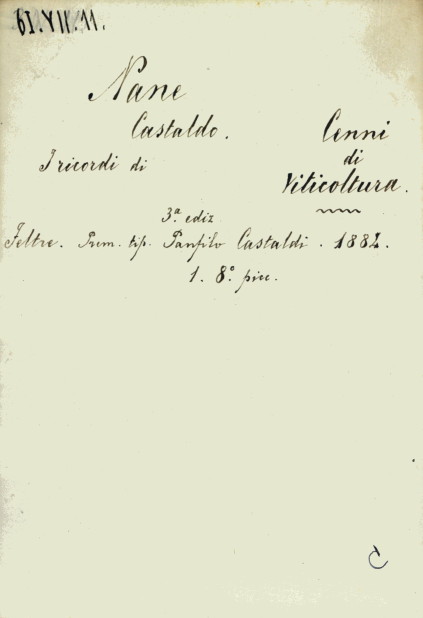 61.VII.11.
Nane
Castaldo. Cenni
I ricordi di di
Viticoltura.
3ª ediz.
Feltre. Prem. tip. Panfilo Castaldi. 1882.
1. 8º picc.
C